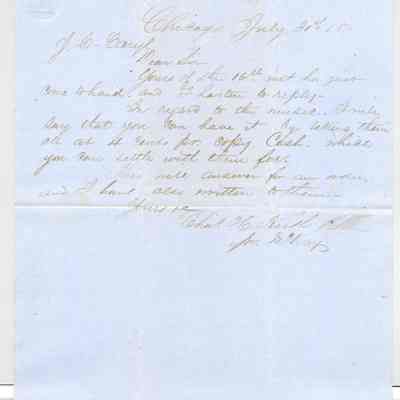 Chicago July 20th 18
J. C. Caryl
Dear Sir
Yours of the 16th inst has just
come to hand and I hasten to reply.
In regard to the music. I will
say that you can have it by taking them
all at 4 cents pr. copy Cash. what
you can settle with them for.
This will answer for an order
and I have also written to them
Yours &c
Chas. H.